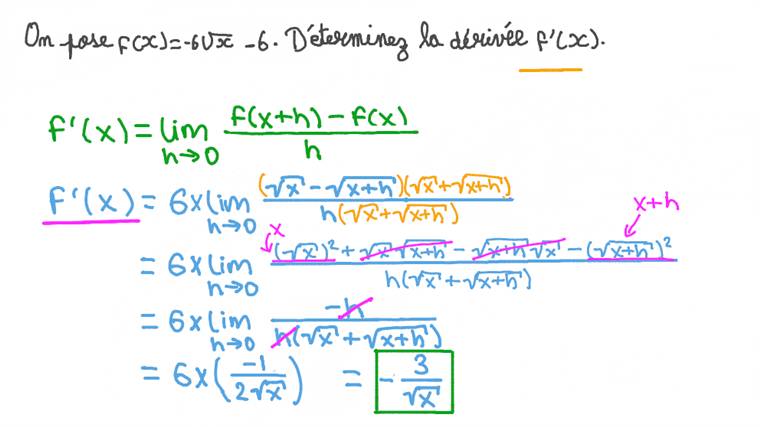 On pose f(x)=-6√x -6. Déterminez la dérivée f'(x).
f'(x) = lim h→0 (f(x+h) - f(x))/h
f'(x) = 6× lim h→0 ((√x - √(x+h))(√x + √(x+h)))/(h(√x + √(x+h)))
x x+h
= 6× lim h→0 ((√x)² + √x√(x+h) - √(x+h)√x - (√(x+h))²)/(h(√x + √(x+h)))
= 6× lim h→0 (-h)/(h(√x + √(x+h)))
= 6×(-1/(2√x)) = -3/√x